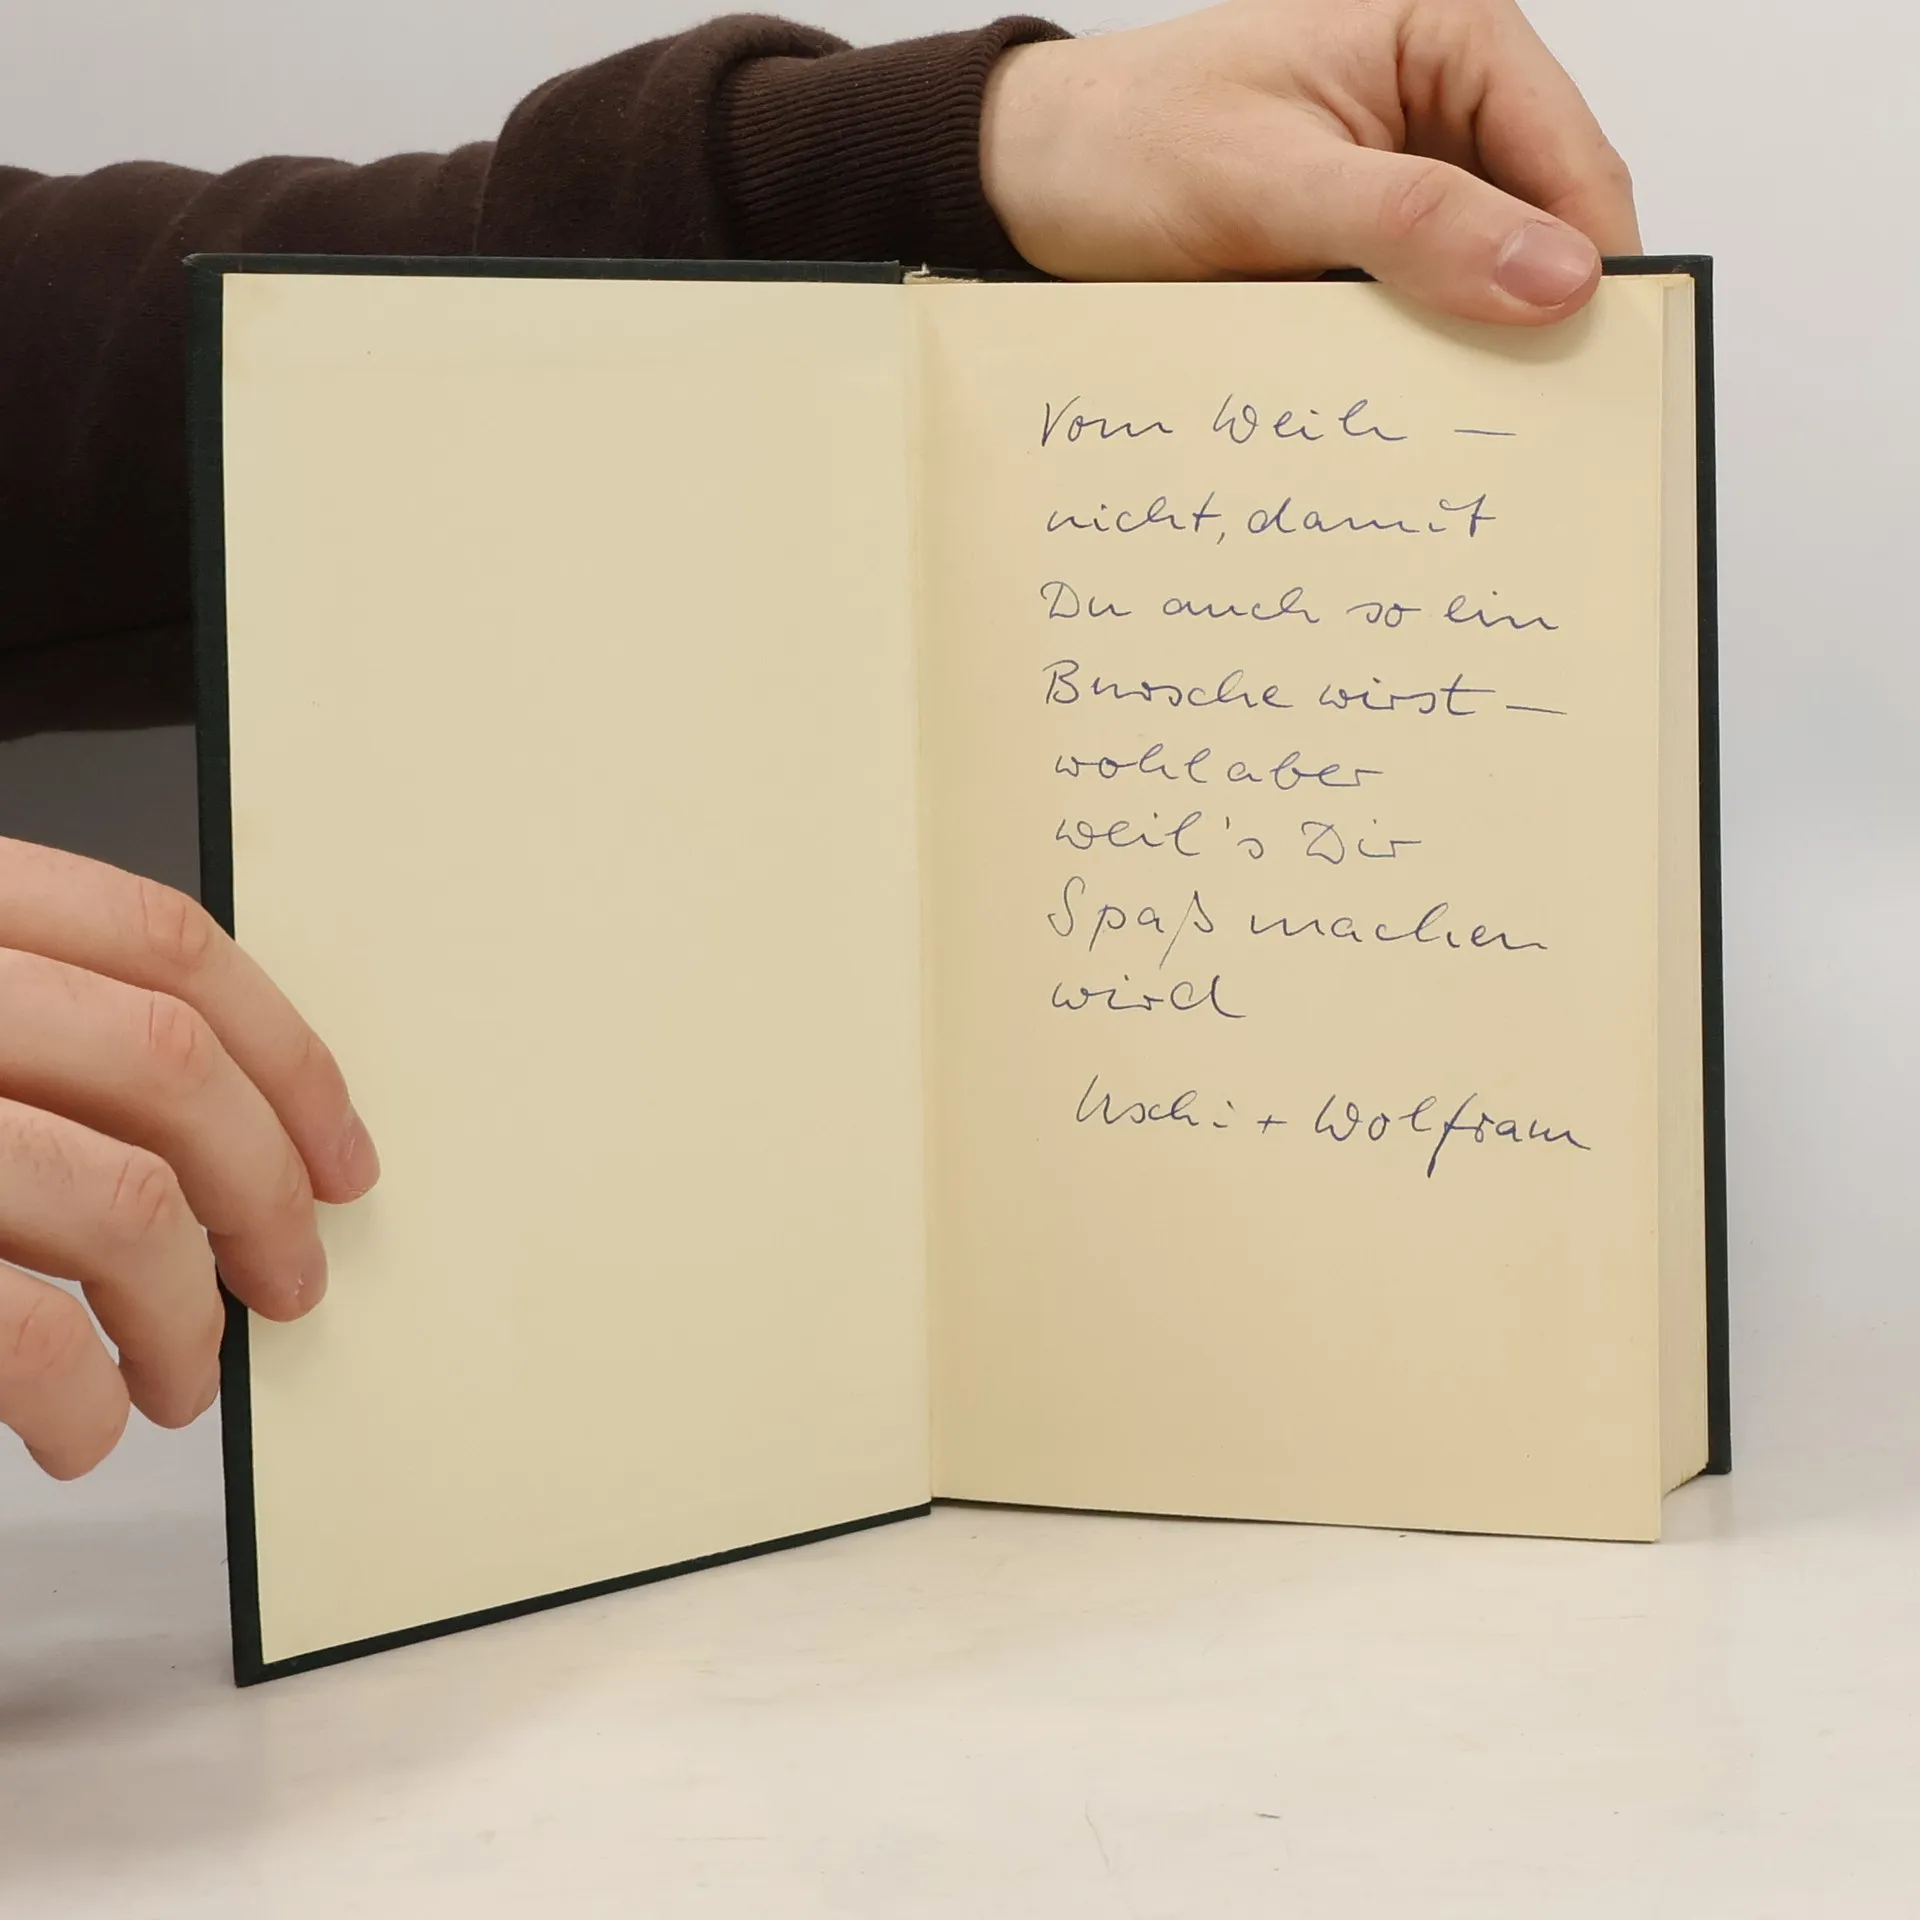 Vom Weih —
nicht, damit
Du auch so ein
Bursche wirst —
wohl aber
weil's Dir
Spaß machen
wird
Uschi + Wolfram